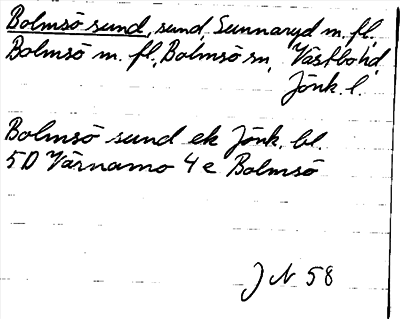 Bolmsö sund, sund, Sunnaryd m. fl.,
Bolmsö m. fl., Bolmsö sn, Västbo hd,
Jönk. l.
Bolmsö sund ek Jönk. bl.
5D Värnamo 4 e Bolmsö
J N 58